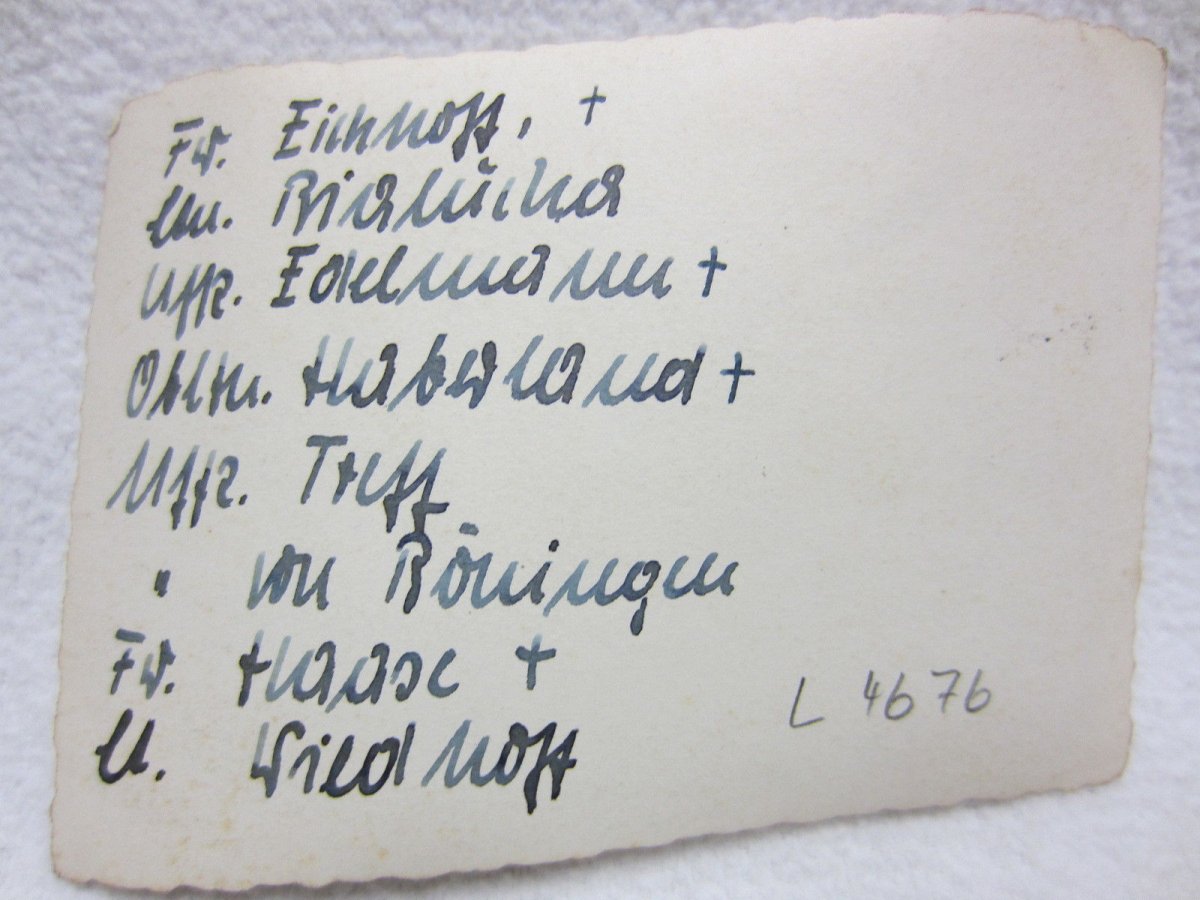 Fw. Eichhoff, +
Ltn. Bialucha
Uffz. Edelmann +
Obltn. Haberland +
Uffz. Treff
" von Böningen
Fw. Haase +
U. Wildhoff
L 4676